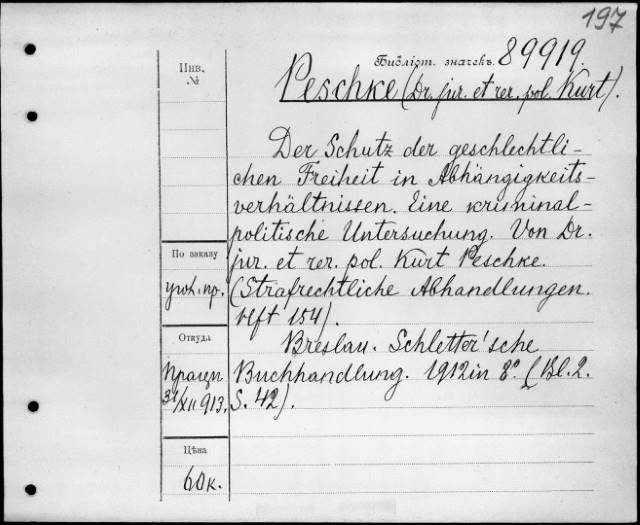 197
Библіот. значекъ. 89919.
Инв.
№
Peschke (Dr. jur. et rer. pol. Kurt).
Der Schutz der geschlechtli-
chen Freiheit in Abhängigkeits-
verhältnissen. Eine kriminal-
politische Untersuchung. Von Dr.
jur. et rer. pol. Kurt Peschke.
(Strafrechtliche Abhandlungen.
Heft 154).
Breslau. Schletter'sche
Buchhandlung. 1912 in 8° (Bl. 2.
S. 42).
По заказу
угол. пр.
Откуда
31/XII 913.
Цѣна
60 к.